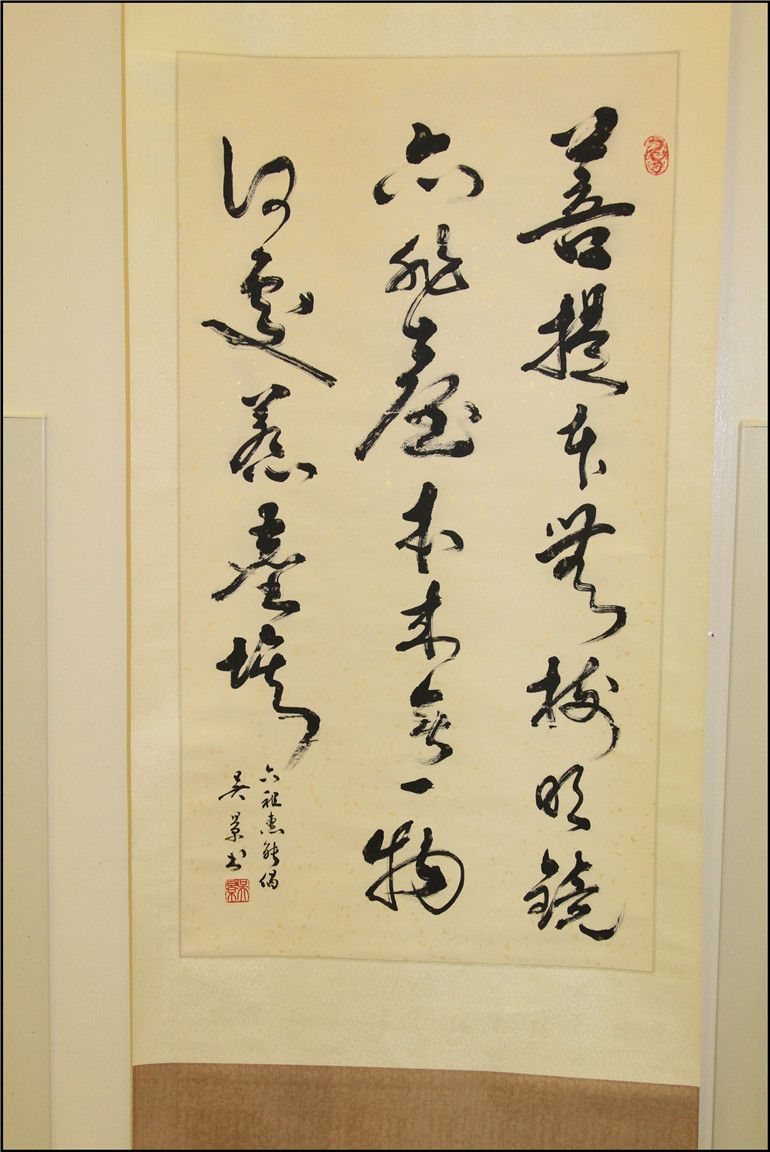 菩提本無樹明鏡
亦非臺本來無一物
何處惹塵埃
六祖惠能偈
吴景书